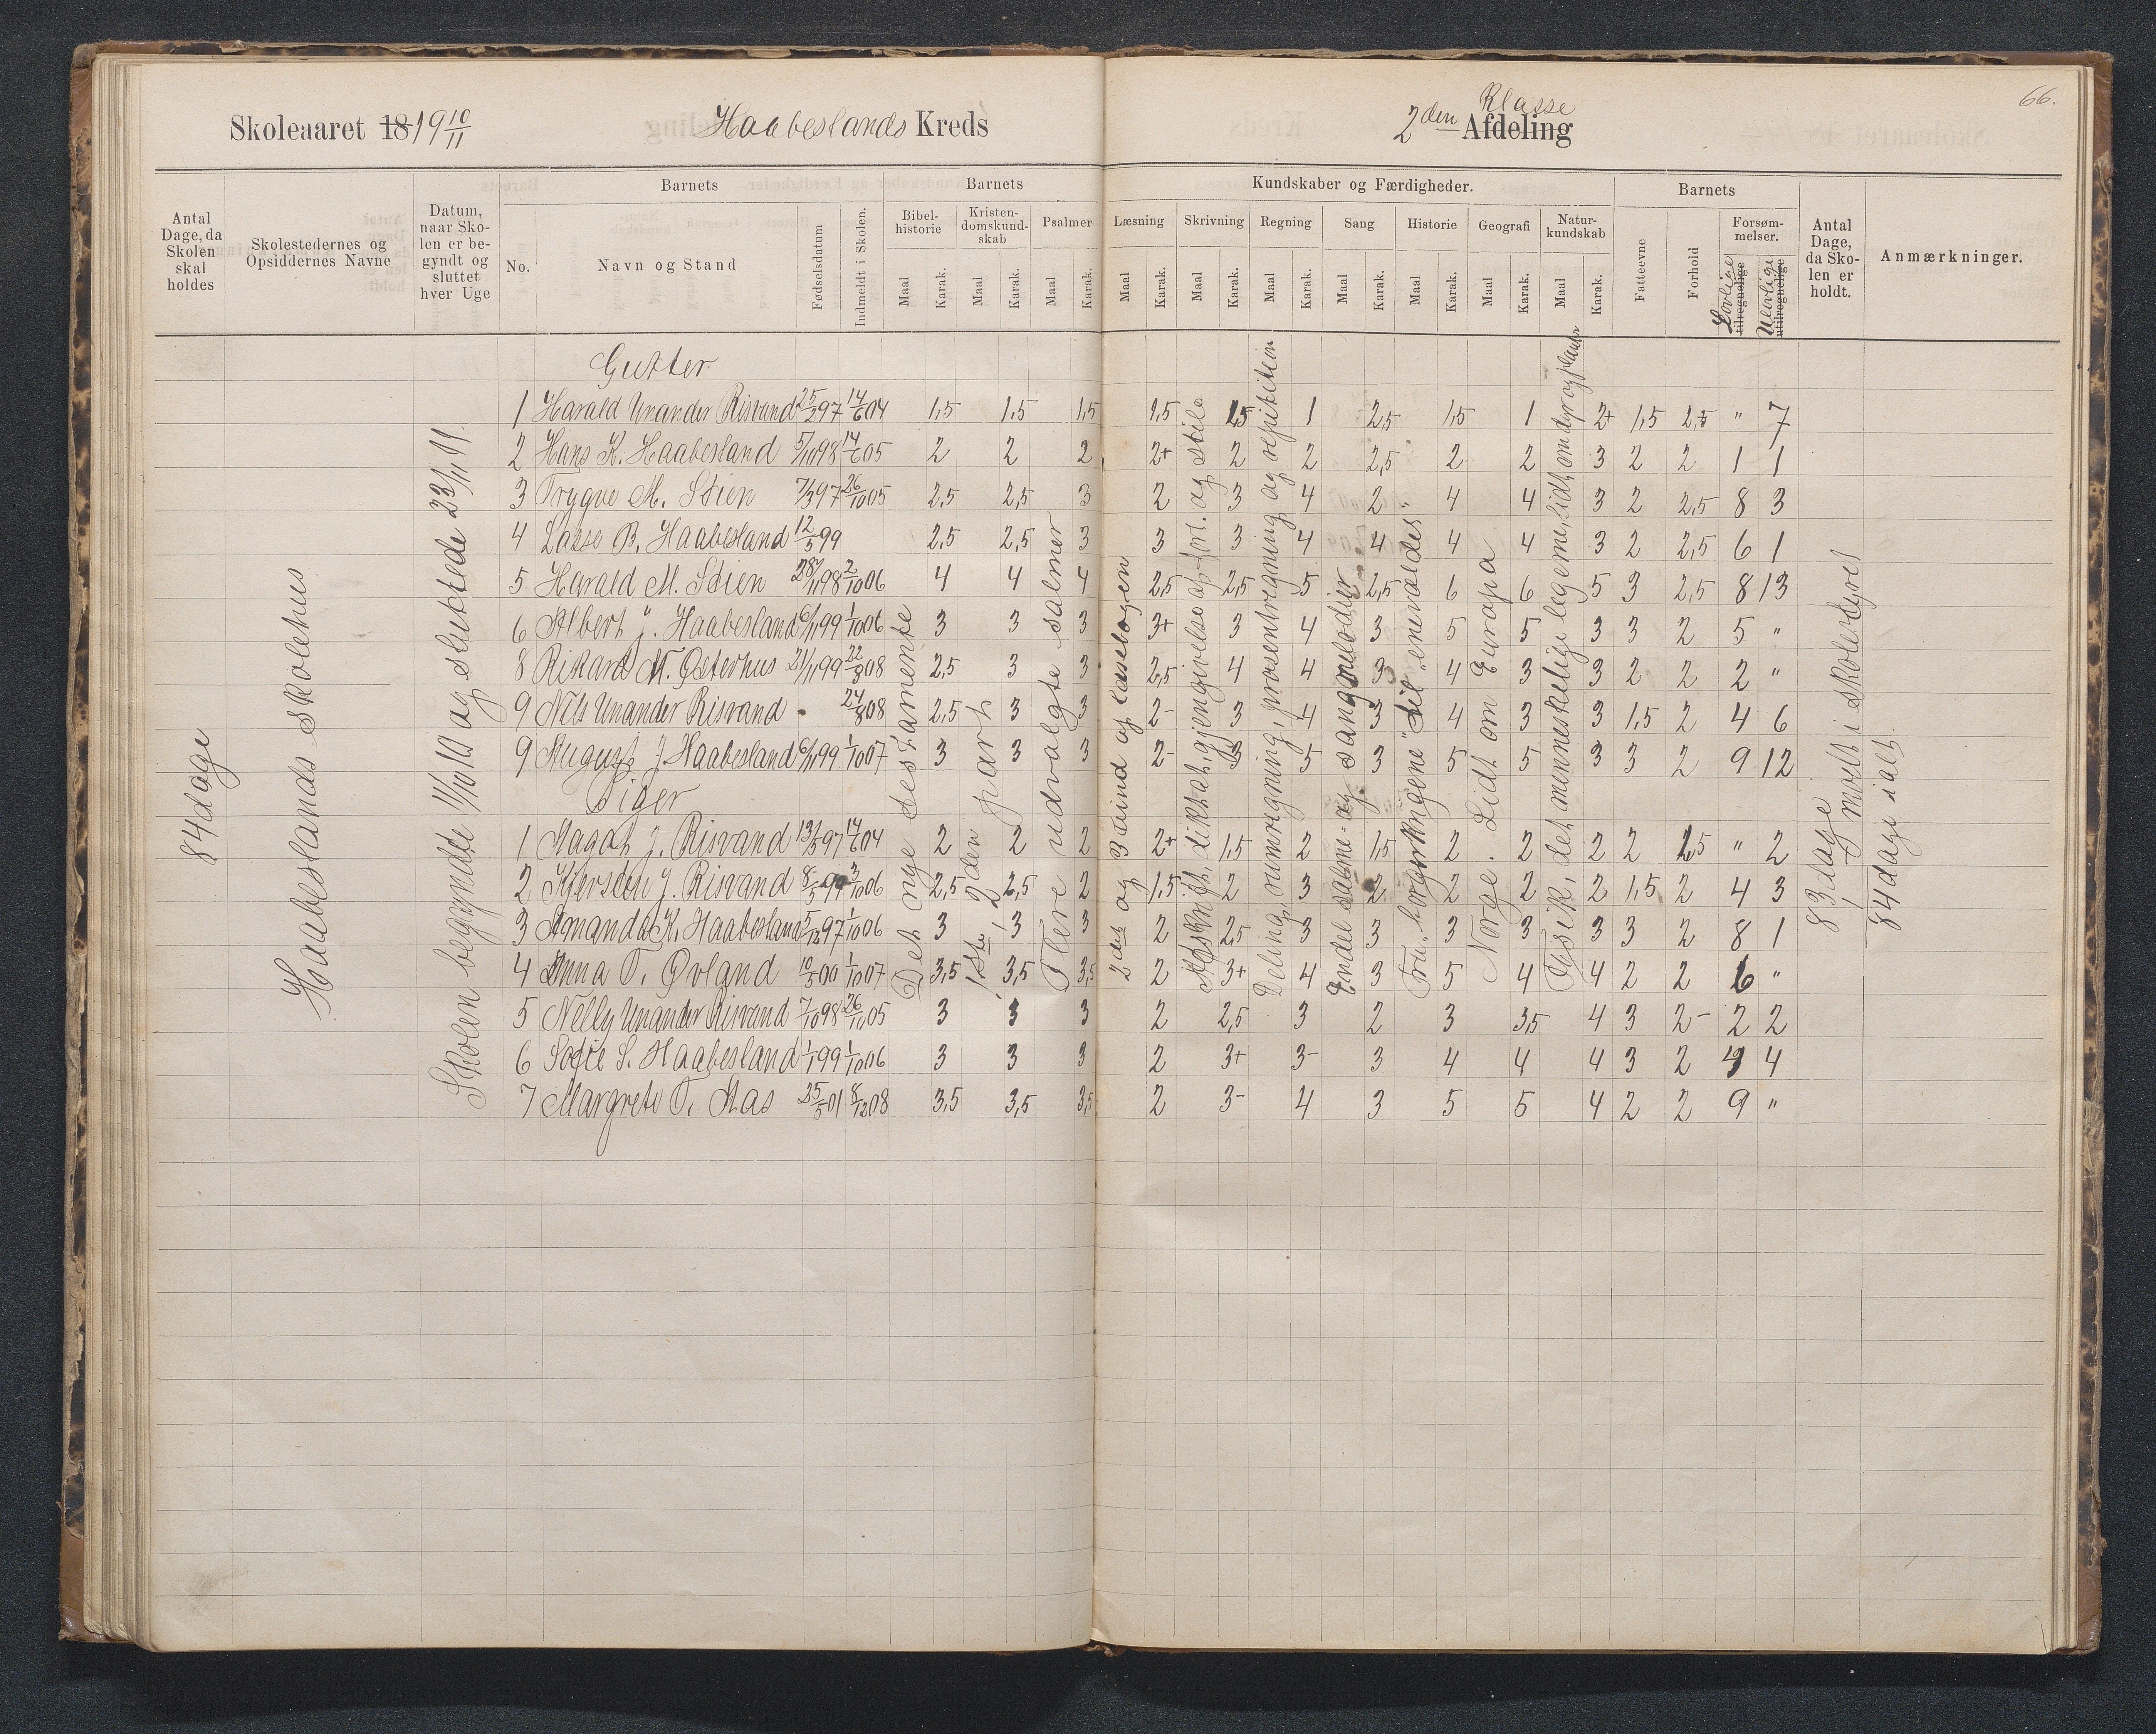 Skoleaaret 18 19 10/11 Haabeslands Kreds
2den Klasse Afdeling
66.
Antal Dage, da Skolen skal holdes
Skolestedernes og Opsiddernes Navne
Datum, naar Skolen er begyndt og sluttet hver Uge
Barnets
No.
Navn og Stand
Fødselsdatum
Indmeldt i Skolen.
Barnets
Bibelhistorie Maal Karak.
Kristendomskundskab Maal Karak.
Psalmer Maal Karak.
Kundskaber og Færdigheder.
Læsning Maal Karak.
Skrivning Maal Karak.
Regning Maal Karak.
Sang Maal Karak.
Historie Maal Karak.
Geografi Maal Karak.
Naturkundskab Maal Karak.
Barnets
Fateevne
Forhold
Forsømmelser.
Lovlige tilregnelige
Ulovlige utilregnelige
Antal Dage, da Skolen er holdt.
Anmærkninger.
84 dage
Haabeslands skolehus
Skolen begyndte 11/10 10 og sluttede 23/11 11.
Det nye testamente
1ste, 2den part
Flere udvalgte salmer
2det og 3 bind af læsebogen
Afskrift, diktat, gjengivelse af fort. og stile
Deling, rumregning, prosentregning og repitition
Endel salme- og sangmelodier
Fra "borgerkrigene" til "enevældet"
Norge. Lidt om Europa
Fysik, det menneskelige legeme, lidt om dyr og planter
83 dage
1 mødt i skolestyret
84 dage ialt.
Gutter
1 Harald Unander Risvand 25/2 97 14/6 04 1,5 1,5 1,5 1,5 1,5 1 2,5 1,5 1 2+ 1,5 2,5 " 7
2 Hans K. Haabesland 5/10 98 14/6 05 2 2 2 2+ 2 2 2,5 2 2 3 2 2 1 1
3 Trygve M. Stien 7/3 97 26/10 05 2,5 2,5 3 2 3 4 2 4 4 3 2 2,5 8 3
4 Lasse B. Haabesland 12/5 99 2,5 2,5 3 3 3 4 4 4 4 3 2 2,5 6 1
5 Harald M. Stien 28/1 98 2/10 06 4 4 4 2,5 2,5 5 2,5 6 6 5 3 2,5 8 13
6 Albert J. Haabesland 6/11 99 1/10 06 3 3 3 3+ 3 4 3 5 5 3 3 2 5 "
8 Rikard M. Østerhus 21/11 99 22/8 08 2,5 3 3 2,5 4 4 3 4 3 3 2 2 2 "
9 Nils Unander Risvand 24/8 08 2,5 3 3 2- 3 4 3 4 3 3 1,5 2 4 6
9 August J. Haabesland 6/11 99 1/10 07 3 3 3 2- 3 5 3 5 5 3 3 2 9 12
Piger
1 Aagot J. Risvand 13/5 97 14/6 04 2 2 2 2+ 1,5 2 1,5 2 2 2 2 2,5 " 2
2 Kjersten J. Risvand 8/5 99 3/10 06 2,5 2,5 2 1,5 2 3 2 2 2 2 1,5 2 4 3
3 Amanda K. Haabesland 5/12 97 1/10 06 3 3 3 2 2,5 3 3 3 3 3 3 2 8 1
4 Anna T. Øvland 10/5 00 1/10 07 3,5 3,5 3,5 2 3+ 4 3 5 4 4 2 2 6 "
5 Nelly Unander Risvand 7/10 98 26/10 05 3 3 3 2 2,5 3 2 3 3,5 4 3 2- 2 2
6 Sofie S. Haabesland 1/1 99 1/10 06 3 3 3 2 3+ 3- 3 4 4 4 3 2 4
7 Margrete T. Aas 25/5 01 8/12 08 3,5 3,5 3,5 2 3- 4 3 5 5 4 2 2 9 "